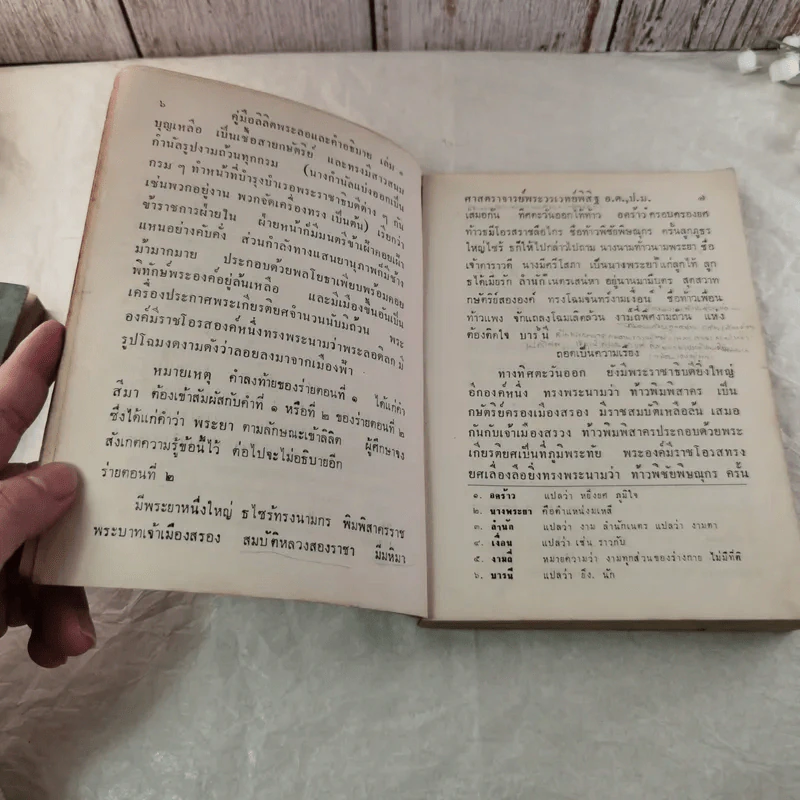 ๖
คู่มือลิลิตพระลอและคำอธิบาย เล่ม ๑
บุญเหลือ เป็นเชื้อสายกษัตริย์ และทรงมีสาวสนม
กำนัลรูปงามถ้วนทุกกรม (นางกำนัลแบ่งออกเป็น
กรม ๆ ทำหน้าที่บำรุงบำเรอพระราชาธิบดีต่าง ๆ กัน
เช่นพวกอยู่งาน พวกจัดเครื่องทรง เป็นต้น) เรียกว่า
ข้าราชการฝ่ายใน ฝ่ายหน้าก็มีมนตรีข้าเฝ้าคอยเฝ้า
แหนอย่างคับคั่ง ส่วนกำลังทางแสนยานุภาพก็มีช้าง
ม้ามากมาย ประกอบด้วยพลโยธาเพียบพร้อมคอย
พิทักษ์พระองค์อยู่ล้นเหลือ และมีเมืองขึ้นอันเป็น
เครื่องประกาศพระเกียรติยศจำนวนนับมิถ้วน พระ
องค์มีราชโอรสองค์หนึ่งทรงพระนามว่าพระลอดิลก มี
รูปโฉมงดงามดังว่าลอยลงมาจากเมืองฟ้า
หมายเหตุ คำลงท้ายของร่ายตอนที่ ๑ ได้แก่คำ
สีมา ต้องเข้าสัมผัสกับคำที่ ๑ หรือที่ ๒ ของร่ายตอนที่ ๒
ซึ่งได้แก่คำว่า พระยา ตามลักษณะเข้าลิลิต ผู้ศึกษาจง
สังเกตความรู้ข้อนี้ไว้ ต่อไปจะไม่อธิบายอีก
ร่ายตอนที่ ๒
มีพระยาหนึ่งใหญ่ ธไซร้ทรงนามกร พิมพิสาครราช
พระบาทเจ้าเมืองสรอง สมบัติหลวงสองราชา มีมหิมา
ศาสตราจารย์พระวรเวทย์พิสิฐ อ.ด.,ป.ม. ๗
เสมอกัน ทิศตะวันออกไท้ท้าว อคร้าวครอบครองยศ
ท้าวธมีโอรสราชฦๅไกร ชื่อท้าวพิชัยพิษณุกร ครั้นลูกภูธร
ใหญ่ไซร้ ธก็ให้ไปกล่าวไปถาม นางนามท้าวนามพระยา ชื่อ
เจ้าดาราวดี นางมีศรีโสภา เป็นนางพระยาแก่ลูกไท้ ลูก
ธได้เมียรัก ลำนักเนตรเสน่หา อยู่นานมามีบุตร สุดสวาท
กษัตรีย์สององค์ ทรงโฉมจันทร์งามเงื่อน ชื่อท้าวเพื่อน
ท้าวแพง จักแถลงโฉมเลิศล้วน งามถี่พิศงามถ้วน แห่ง
ต้องติดใจ บารนี
ถอดเป็นความเรียง
ทางทิศตะวันออก ยังมีพระราชาธิบดียิ่งใหญ่
อีกองค์หนึ่ง ทรงพระนามว่า ท้าวพิมพิสาคร เป็น
กษัตริย์ครองเมืองสรอง มีราชสมบัติเหลือล้น เสมอ
กันกับเจ้าเมืองสรวง ท้าวพิมพิสาครประกอบด้วยพระ
เกียรติยศเป็นที่ภูมิพระทัย พระองค์มีราชโอรสทรง
ยศเลื่องลือยิ่งทรงพระนามว่า ท้าวพิชัยพิษณุกร ครั้น
๑. อคร้าว แปลว่า หยิ่งยศ ภูมิใจ
๒. นางพระยา คือตำแหน่งมเหสี
๓. ลำนัก แปลว่า งาม ลำนักเนตร แปลว่า งามตา
๔. เงื่อน แปลว่า เช่น ราวกับ
๕. งามถี่ หมายความว่า งามทุกส่วนของร่างกาย ไม่มีที่ติ
๖. บารนี แปลว่า ยิ่ง, นัก